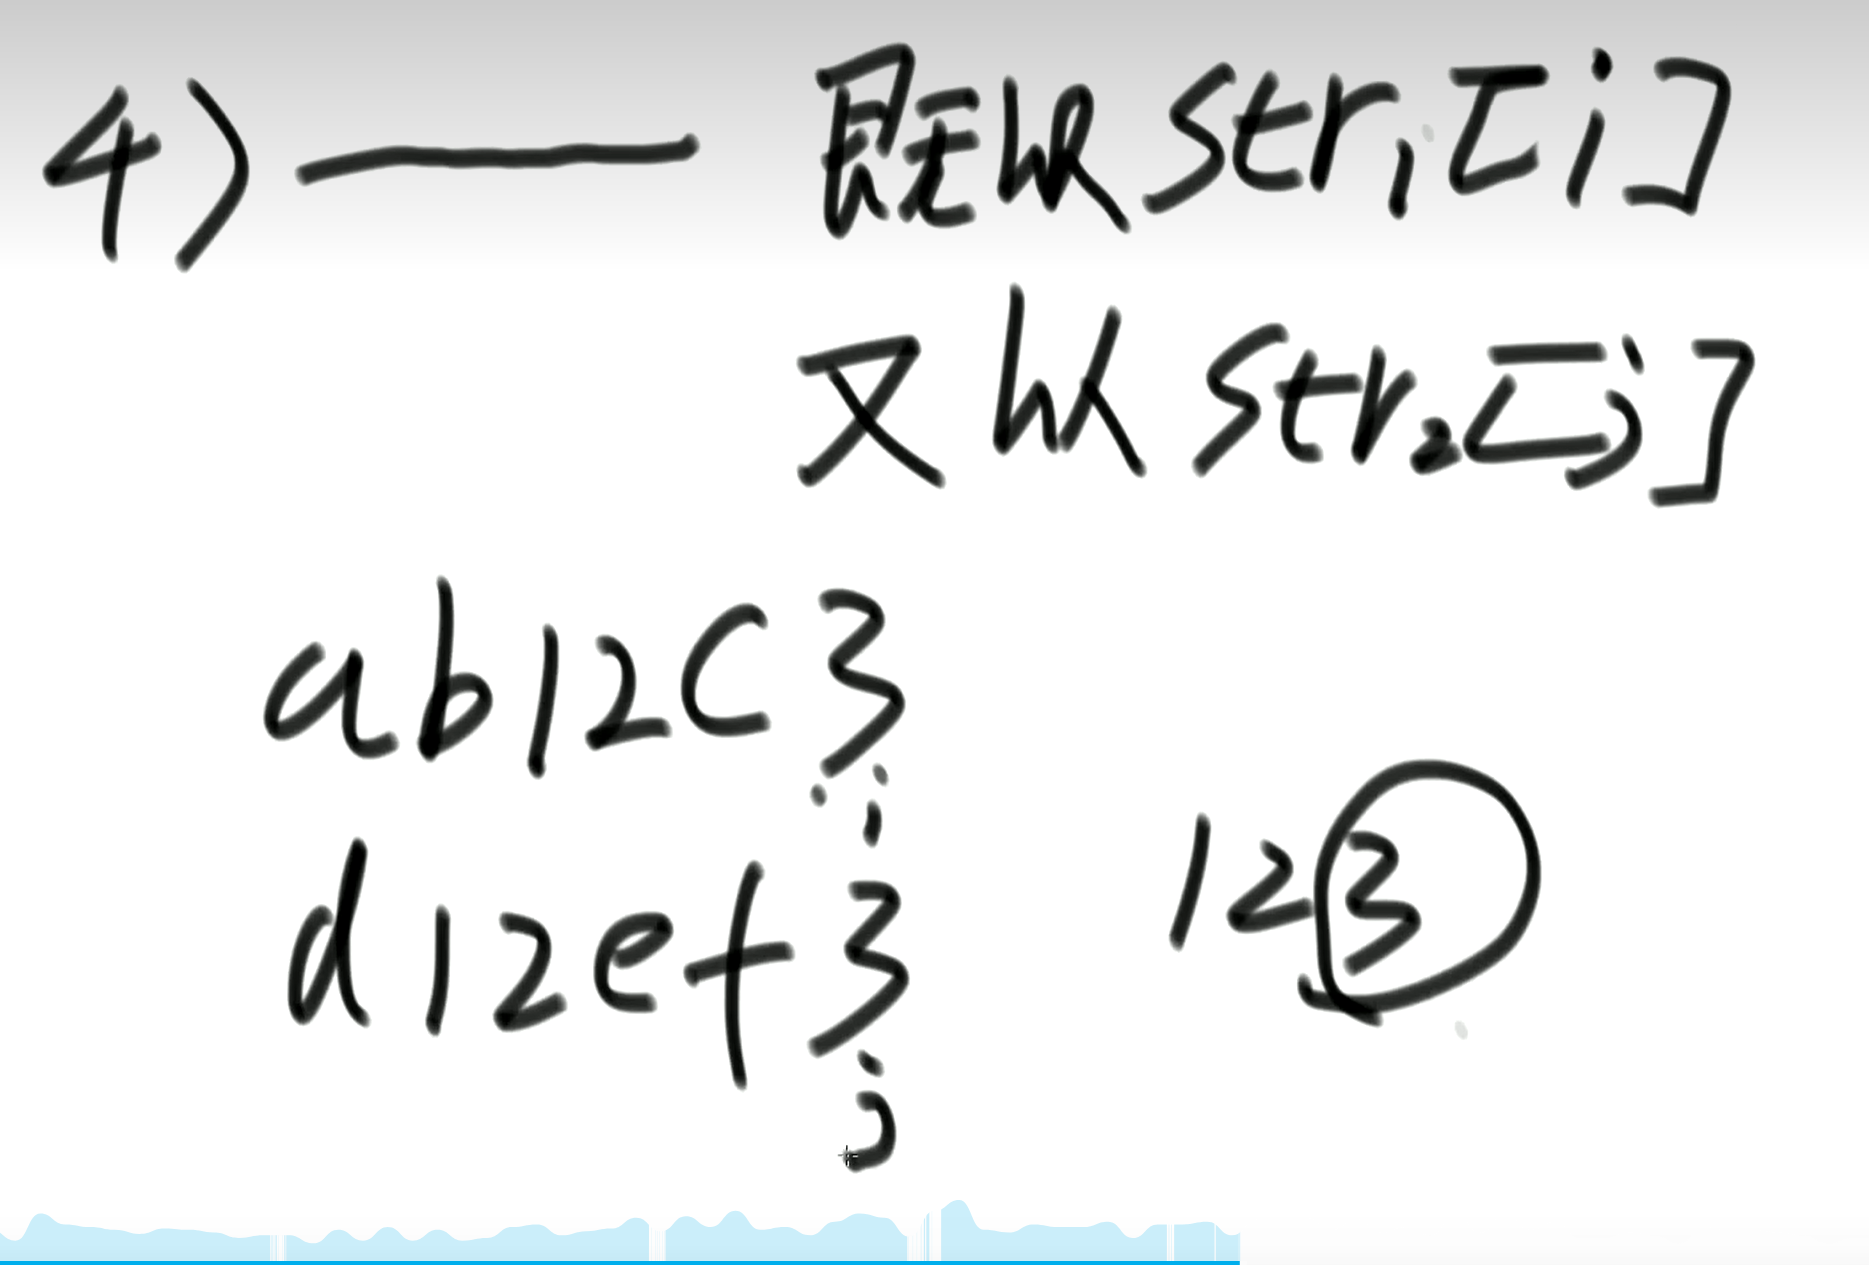 4) —— 既以 str1[i]
又以 str2[j]
ab12c3
i
d12ef3
j
123